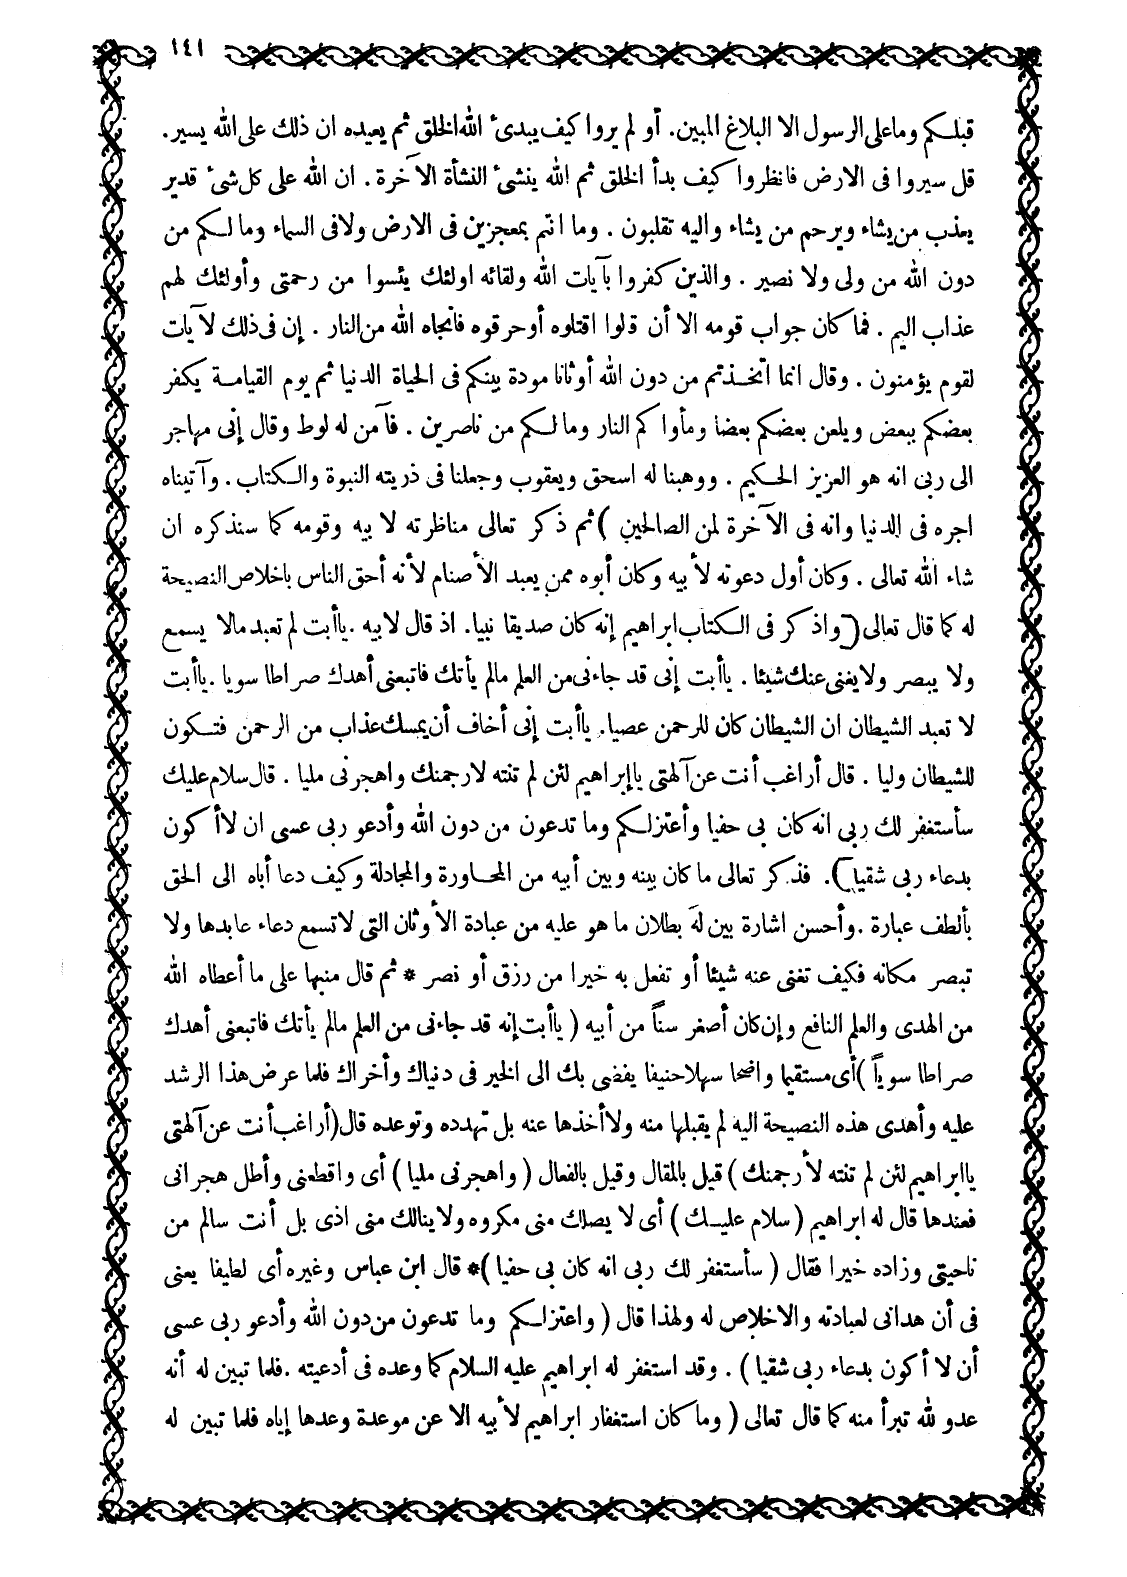 ١٤١
قبلكم وما على الرسول الا البلاغ المبين. أو لم يروا كيف يبدئ الله الخلق ثم يعيده ان ذلك على الله يسير.
قل سيروا فى الارض فانظروا كيف بدأ الخلق ثم الله ينشئ النشأة الآخرة. ان الله على كل شئ قدير
يعذب من يشاء ويرحم من يشاء واليه تقلبون. وما انتم بمعجزين فى الارض ولا فى السماء وما لكم من
دون الله من ولى ولا نصير. والذين كفروا بآيات الله ولقائه اولئك يئسوا من رحمتى وأولئك لهم
عذاب اليم. فما كان جواب قومه الا أن قالوا اقتلوه أو حرقوه فانجاه الله من النار. إن فى ذلك لآيات
لقوم يؤمنون. وقال انما اتخذتم من دون الله أوثانا مودة بينكم فى الحياة الدنيا ثم يوم القيامة يكفر
بعضكم ببعض ويلعن بعضكم بعضا ومأواكم النار وما لكم من ناصرين. فآمن له لوط وقال إنى مهاجر
الى ربى انه هو العزيز الحكيم. ووهبنا له اسحق ويعقوب وجعلنا فى ذريته النبوة والكتاب. وآتيناه
اجره فى الدنيا وانه فى الآخرة لمن الصالحين) ثم ذكر تعالى مناظرته لابيه وقومه كما سنذكره ان
شاء الله تعالى. وكان أول دعوته لأبيه وكان أبوه ممن يعبد الأصنام لأنه أحق الناس باخلاص النصيحة
له كما قال تعالى (واذكر فى الكتاب ابراهيم إنه كان صديقا نبيا. اذ قال لابيه. ياأبت لم تعبد مالا يسمع
ولا يبصر ولا يغنى عنك شيئا. ياأبت إنى قد جاءنى من العلم مالم يأتك فاتبعنى أهدك صراطا سويا. ياأبت
لا تعبد الشيطان ان الشيطان كان للرحمن عصيا. ياأبت إنى أخاف أن يمسك عذاب من الرحمن فتكون
للشيطان وليا. قال أراغب أنت عن آلهتى ياإبراهيم لئن لم تنته لارجمنك واهجرنى مليا. قال سلام عليك
سأستغفر لك ربى انه كان بى حفيا وأعتزلكم وما تدعون من دون الله وأدعو ربى عسى ان لا أكون
بدعاء ربى شقيا). فذكر تعالى ما كان بينه وبين أبيه من المحاورة والمجادلة وكيف دعا أباه الى الحق
بألطف عبارة. وأحسن اشارة بين له بطلان ما هو عليه من عبادة الأوثان التى لا تسمع دعاء عابدها ولا
تبصر مكانه فكيف تغنى عنه شيئا أو تفعل به خيرا من رزق أو نصر * ثم قال منبها على ما أعطاه الله
من الهدى والعلم النافع وإن كان أصغر سناً من أبيه ( ياأبت إنه قد جاءنى من العلم مالم يأتك فاتبعنى أهدك
صراطا سوياً ) أى مستقيما واضحا سهلا حنيفا يفضى بك الى الخير فى دنياك وأخراك فلما عرض هذا الرشد
عليه وأهدى هذه النصيحة اليه لم يقبلها منه ولا أخذها عنه بل تهدده وتوعده قال (أراغب أنت عن آلهتى
ياابراهيم لئن لم تنته لأرجمنك ) قيل بالمقال وقيل بالفعال ( واهجرنى مليا ) أى واقطعنى وأطل هجرانى
فعندها قال له ابراهيم ( سلام عليك ) أى لا يصلك منى مكروه ولا ينالك منى اذى بل أنت سالم من
ناحيتى وزاده خيرا فقال ( سأستغفر لك ربى انه كان بى حفيا )* قال ابن عباس وغيره أى لطيفا يعنى
فى أن هدانى لعبادته والاخلاص له ولهذا قال ( واعتزلكم وما تدعون من دون الله وأدعو ربى عسى
أن لا أكون بدعاء ربى شقيا ). وقد استغفر له ابراهيم عليه السلام كما وعده فى أدعيته. فلما تبين له أنه
عدو لله تبرأ منه كما قال تعالى ( وما كان استغفار ابراهيم لأبيه الا عن موعدة وعدها إياه فلما تبين له